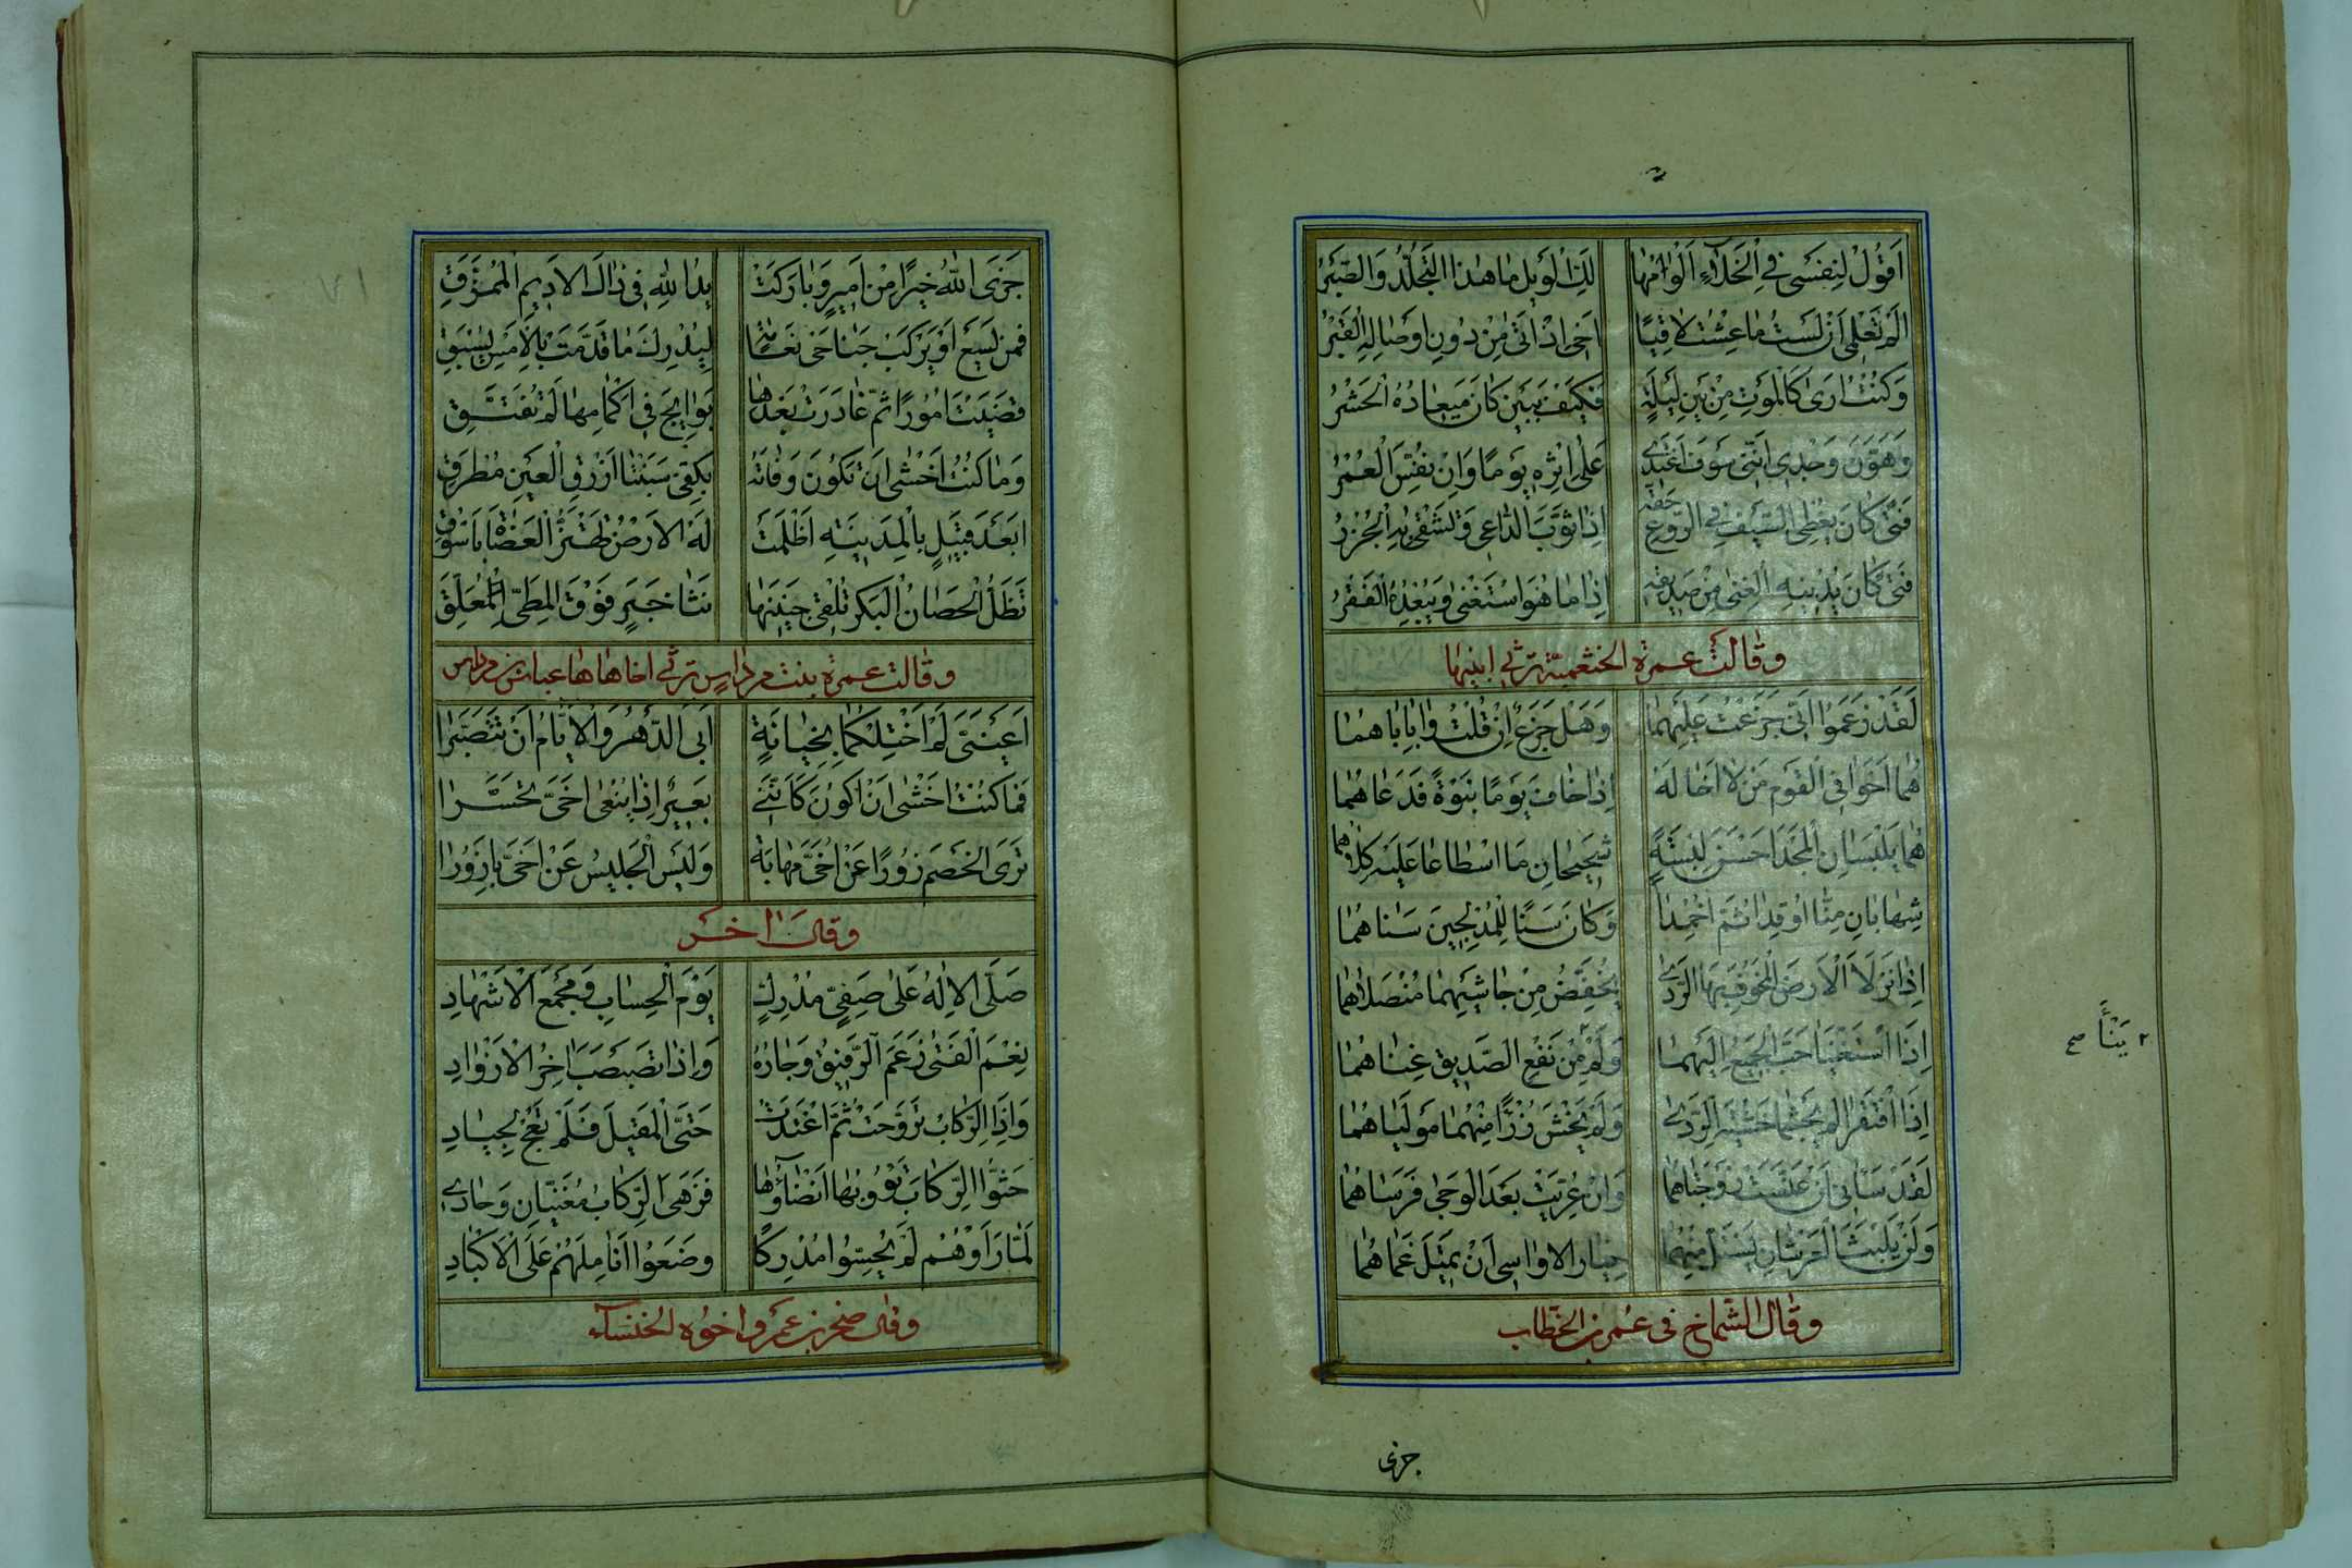 اَقُولُ لِنَفْسِى فِى الْخَلَاءِ اَلُوْمُهَا لَكِ الْوَيْلُ مَا هٰذَا التَّجَلُّدُ وَالصَّبْرُ
اَلَمْ تَعْلَمِى اَنْ لَسْتُ مَا عِشْتُ لَاقِيًا اَخِى اِذْ اَتٰى مِنْ دُونِ اَوْصَالِهِ الْقَبْرُ
وَكُنْتُ اَرٰى كَالْمَوْتِ مِنْ بَيْنِ لَيْلَةٍ فَكَيْفَ بِبَيْنٍ كَانَ مِيعَادُهُ الْحَشْرُ
وَهَوَّنَ وَجْدِى اَنَّنِى سَوْفَ اَغْتَدِى عَلٰى اِثْرِهِ يَوْمًا وَاِنْ نُفِّسَ الْعُمْرُ
فَتًى كَانَ يُعْطِى السَّيْفَ فِى الرَّوْعِ حَقَّهُ اِذَا ثَوَّبَ الدَّاعِى وَتَشْقٰى بِهِ الْجُزْرُ
فَتًى كَانَ يُدْنِيهِ الْغِنٰى مِنْ صَدِيقِهِ اِذَا مَا هُوَ اسْتَغْنٰى وَيُبْعِدُهُ الْفَقْرُ
وقالت عمرة الخثعمية ترثى ابنيها
لَقَدْ زَعَمُوا اَنِّى جَزِعْتُ عَلَيْهِمَا وَهَلْ جَزَعٌ اِنْ قُلْتُ وَابِاَبَاهُمَا
هُمَا اَخَوَا فِى الْقَوْمِ مَنْ لَا اَخَا لَهُ اِذَا خَافَ يَوْمًا نَبْوَةً فَدَعَاهُمَا
هُمَا يَلْبَسَانِ الْمَجْدَ اَحْسَنَ لِبْسَةٍ شَحِيحَانِ مَا اسْطَاعَا عَلَيْهِ كِلَاهُمَا
شِهَابَانِ مِنَّا اُوْقِدَا ثُمَّ اُخْمِدَا وَكَانَ سَنًا لِلْمُدْلِجِينَ سَنَاهُمَا
اِذَا نَزَلَا الْاَرْضَ الْمَخُوفَ بِهَا الرَّدٰى يُخَفِّضُ مِنْ جَاشَيْهِمَا مُنْصَلَاهُمَا
اِذَا اسْتَغْنَيَا حَبَّ الْجَمِيعُ اِلَيْهِمَا وَلَمْ مِنْ نَفْعِ الصَّدِيقِ غِنَاهُمَا
٢ يَنْأَ صح
اِذَا افْتَقَرَا لَمْ يَجْثِمَا خَشْيَةَ الرَّدٰى وَلَمْ يَخْشَ رُزْءًا مِنْهُمَا مَوْلَيَاهُمَا
لَقَدْ سَاءَنِى اَنْ عَنَّسَتْ زَوْجَتَاهُمَا وَاِنْ عُرِّيَتْ بَعْدَ الْوَجٰى فَرَسَاهُمَا
وَلَنْ يَلْبَثَ الْعَرْشَانِ يُسْتَلُّ مِنْهُمَا خِيَارُ الاَوَاسِى اَنْ يَمِيلَ غَمَاهُمَا
وقال الشماخ فى عمر بن الخطاب
جزى
جَزَى اللّٰهُ خَيْرًا مِنْ اَمِيرٍ وَبَارَكَتْ يَدُ اللّٰهِ فِى ذَاكَ الاَدِيمِ الْمُمَزَّقِ
فَمَنْ يَسْعَ اَوْ يَرْكَبْ جَنَاحَىْ نَعَامَةٍ لِيُدْرِكَ مَا قَدَّمْتَ بِالْاَمْسِ يُسْبَقِ
قَضَيْتَ اُمُورًا ثُمَّ غَادَرْتَ بَعْدَهَا بَوَايِجَ فِى اَكْمَامِهَا لَمْ تُفَتَّقِ
وَمَا كُنْتُ اَخْشٰى اَنْ تَكُونَ وَفَاتُهُ بِكَفَّىْ سَبَنْتَا اَزْرَقِ الْعَيْنِ مُطْرِقِ
اَبَعْدَ قَتِيلٍ بِالْمَدِينَةِ اَظْلَمَتْ لَهُ الاَرْضُ تَهْتَزُّ الْعَضَاهُ بِاَسْوُقِ
تَظَلُّ الْحَصَانُ الْبِكْرُ تُلْقِى جَنِينَهَا نَثَا خَبَرٍ فَوْقَ الْمَطِىِّ الْمُعَلَّقِ
وقالت عمرة بنت مرداس ترثى اخاها عباس بن مرداس
اَعَيْنَىَّ لَمْ اَخْتِلْكُمَا بِخِيَانَةٍ اَبَى الدَّهْرُ وَالْاَيَّامُ اَنْ تَتَصَبَّرَا
فَمَا كُنْتُ اَخْشٰى اَنْ اَكُونَ كَاَنَّنِى بَعِيرٌ اِذَا يُنْعٰى اَخَىَّ تَحَسَّرَا
تَرَى الْخَصْمَ زُورًا عَنْ اُخَىَّ مَهَابَةً وَلَيْسَ الْجَلِيسُ عَنْ اُخَىَّ بِاَزْوَرَا
وقال آخر
صَلَّى الاِلٰهُ عَلٰى صَفِيّى مُدْرِكٍ يَوْمَ الْحِسَابِ وَمَجْمَعِ الْاَشْهَادِ
نِعْمَ الْفَتٰى زَعَمَ الرَّفِيقُ وَجَارُهُ وَاِذَا تَصَبْصَبَ آخِرُ الْاَزْوَادِ
وَاِذَا الرِّكَابُ تَرَوَّحَتْ ثُمَّ اغْتَدَتْ حَتَّى الْمَقِيلَ فَلَمْ تَعُجْ لِحِيَادِ
حَثُّوا الرِّكَابَ تَؤُوبُهَا اَنْضَاؤُهَا فَزَهَى الرِّكَابَ مُغَنِّيَانِ وَحَادِى
لَمَّا رَاَوْهُمْ لَمْ يُحِسُّوا مُدْرِكًا وَضَعُوا اَنَامِلَهُمْ عَلَى الْاَكْبَادِ
وقال صخر بن عمرو اخوه الخنساء